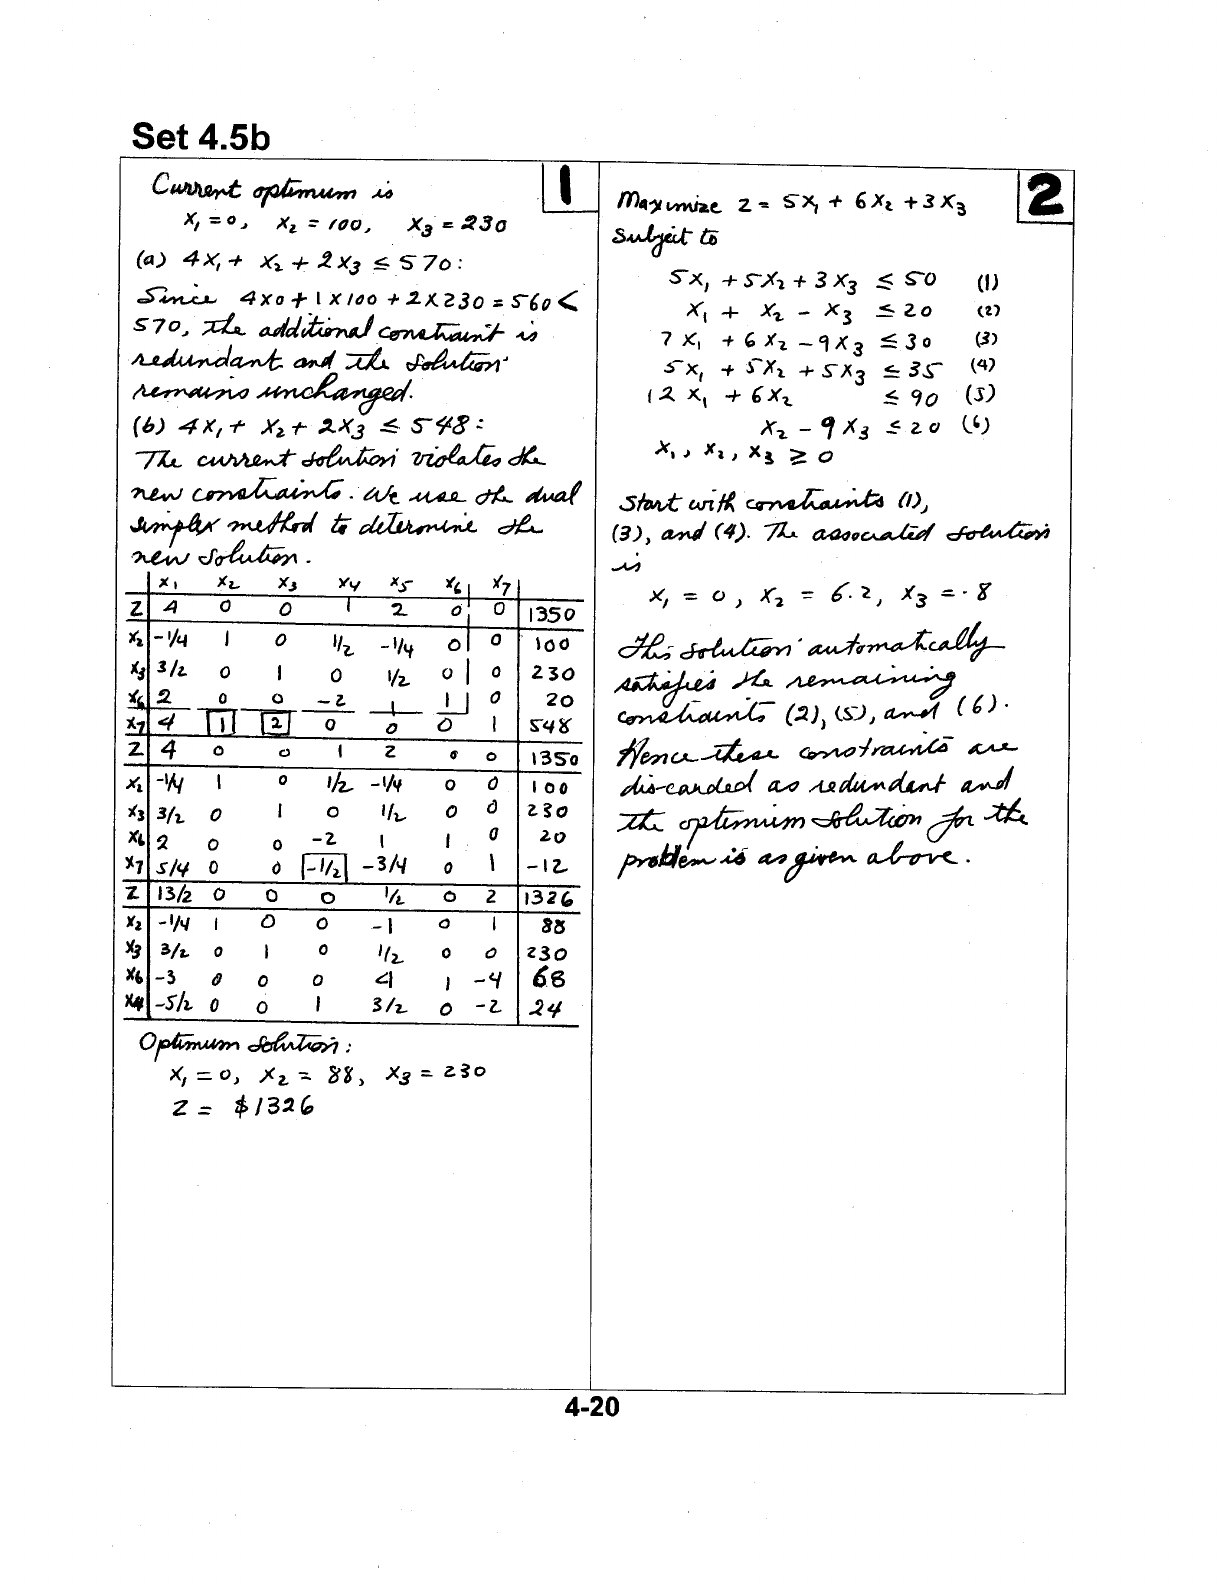 Set 4.5b
1
Current optimum is
x₁ = 0, x₂ = 100, x₃ = 230
(a) 4x₁ + x₂ + 2x₃ ≤ 570:
Since 4x0 + 1x100 + 2x230 = 560 <
570, the additional constraint is
redundant and the solution
remains unchanged.
(b) 4x₁ + x₂ + 2x₃ ≤ 548:
The current solution violates the
new constraints. We use the dual
simplex method to determine the
new solution.
x₁ x₂ x₃ x₄ x₅ x₆ x₇
Z 4 0 0 1 2 0 0 1350
x₂ -1/4 1 0 1/2 -1/4 0 0 100
x₃ 3/2 0 1 0 1/2 0 0 230
x₆ 2 0 0 -2 1 1 0 20
x₇ 4 1 2 0 0 0 1 548
Z 4 0 0 1 2 0 0 1350
x₂ -1/4 1 0 1/2 -1/4 0 0 100
x₃ 3/2 0 1 0 1/2 0 0 230
x₆ 2 0 0 -2 1 1 0 20
x₇ 5/4 0 0 -1/2 -3/4 0 1 -12
Z 13/2 0 0 0 1/2 0 2 1326
x₂ -1/4 1 0 0 -1 0 1 88
x₃ 3/2 0 1 0 1/2 0 0 230
x₆ -3 0 0 0 4 1 -4 68
x₄ -5/2 0 0 1 3/2 0 -2 24
Optimum solution:
x₁ = 0, x₂ = 88, x₃ = 230
Z = $1326
2
Maximize z = 5x₁ + 6x₂ + 3x₃
Subject to
5x₁ + 5x₂ + 3x₃ ≤ 50 (1)
x₁ + x₂ - x₃ ≤ 20 (2)
7x₁ + 6x₂ - 9x₃ ≤ 30 (3)
5x₁ + 5x₂ + 5x₃ ≤ 35 (4)
12x₁ + 6x₂ ≤ 90 (5)
x₂ - 9x₃ ≤ 20 (6)
x₁, x₂, x₃ ≥ 0
Start with constraints (1),
(3), and (4). The associated solution
is
x₁ = 0, x₂ = 6.2, x₃ = .8
This solution automatically
satisfies the remaining
constraints (2), (5), and (6).
Hence these constraints are
discarded as redundant and
the optimum solution for the
problem is as given above.
4-20